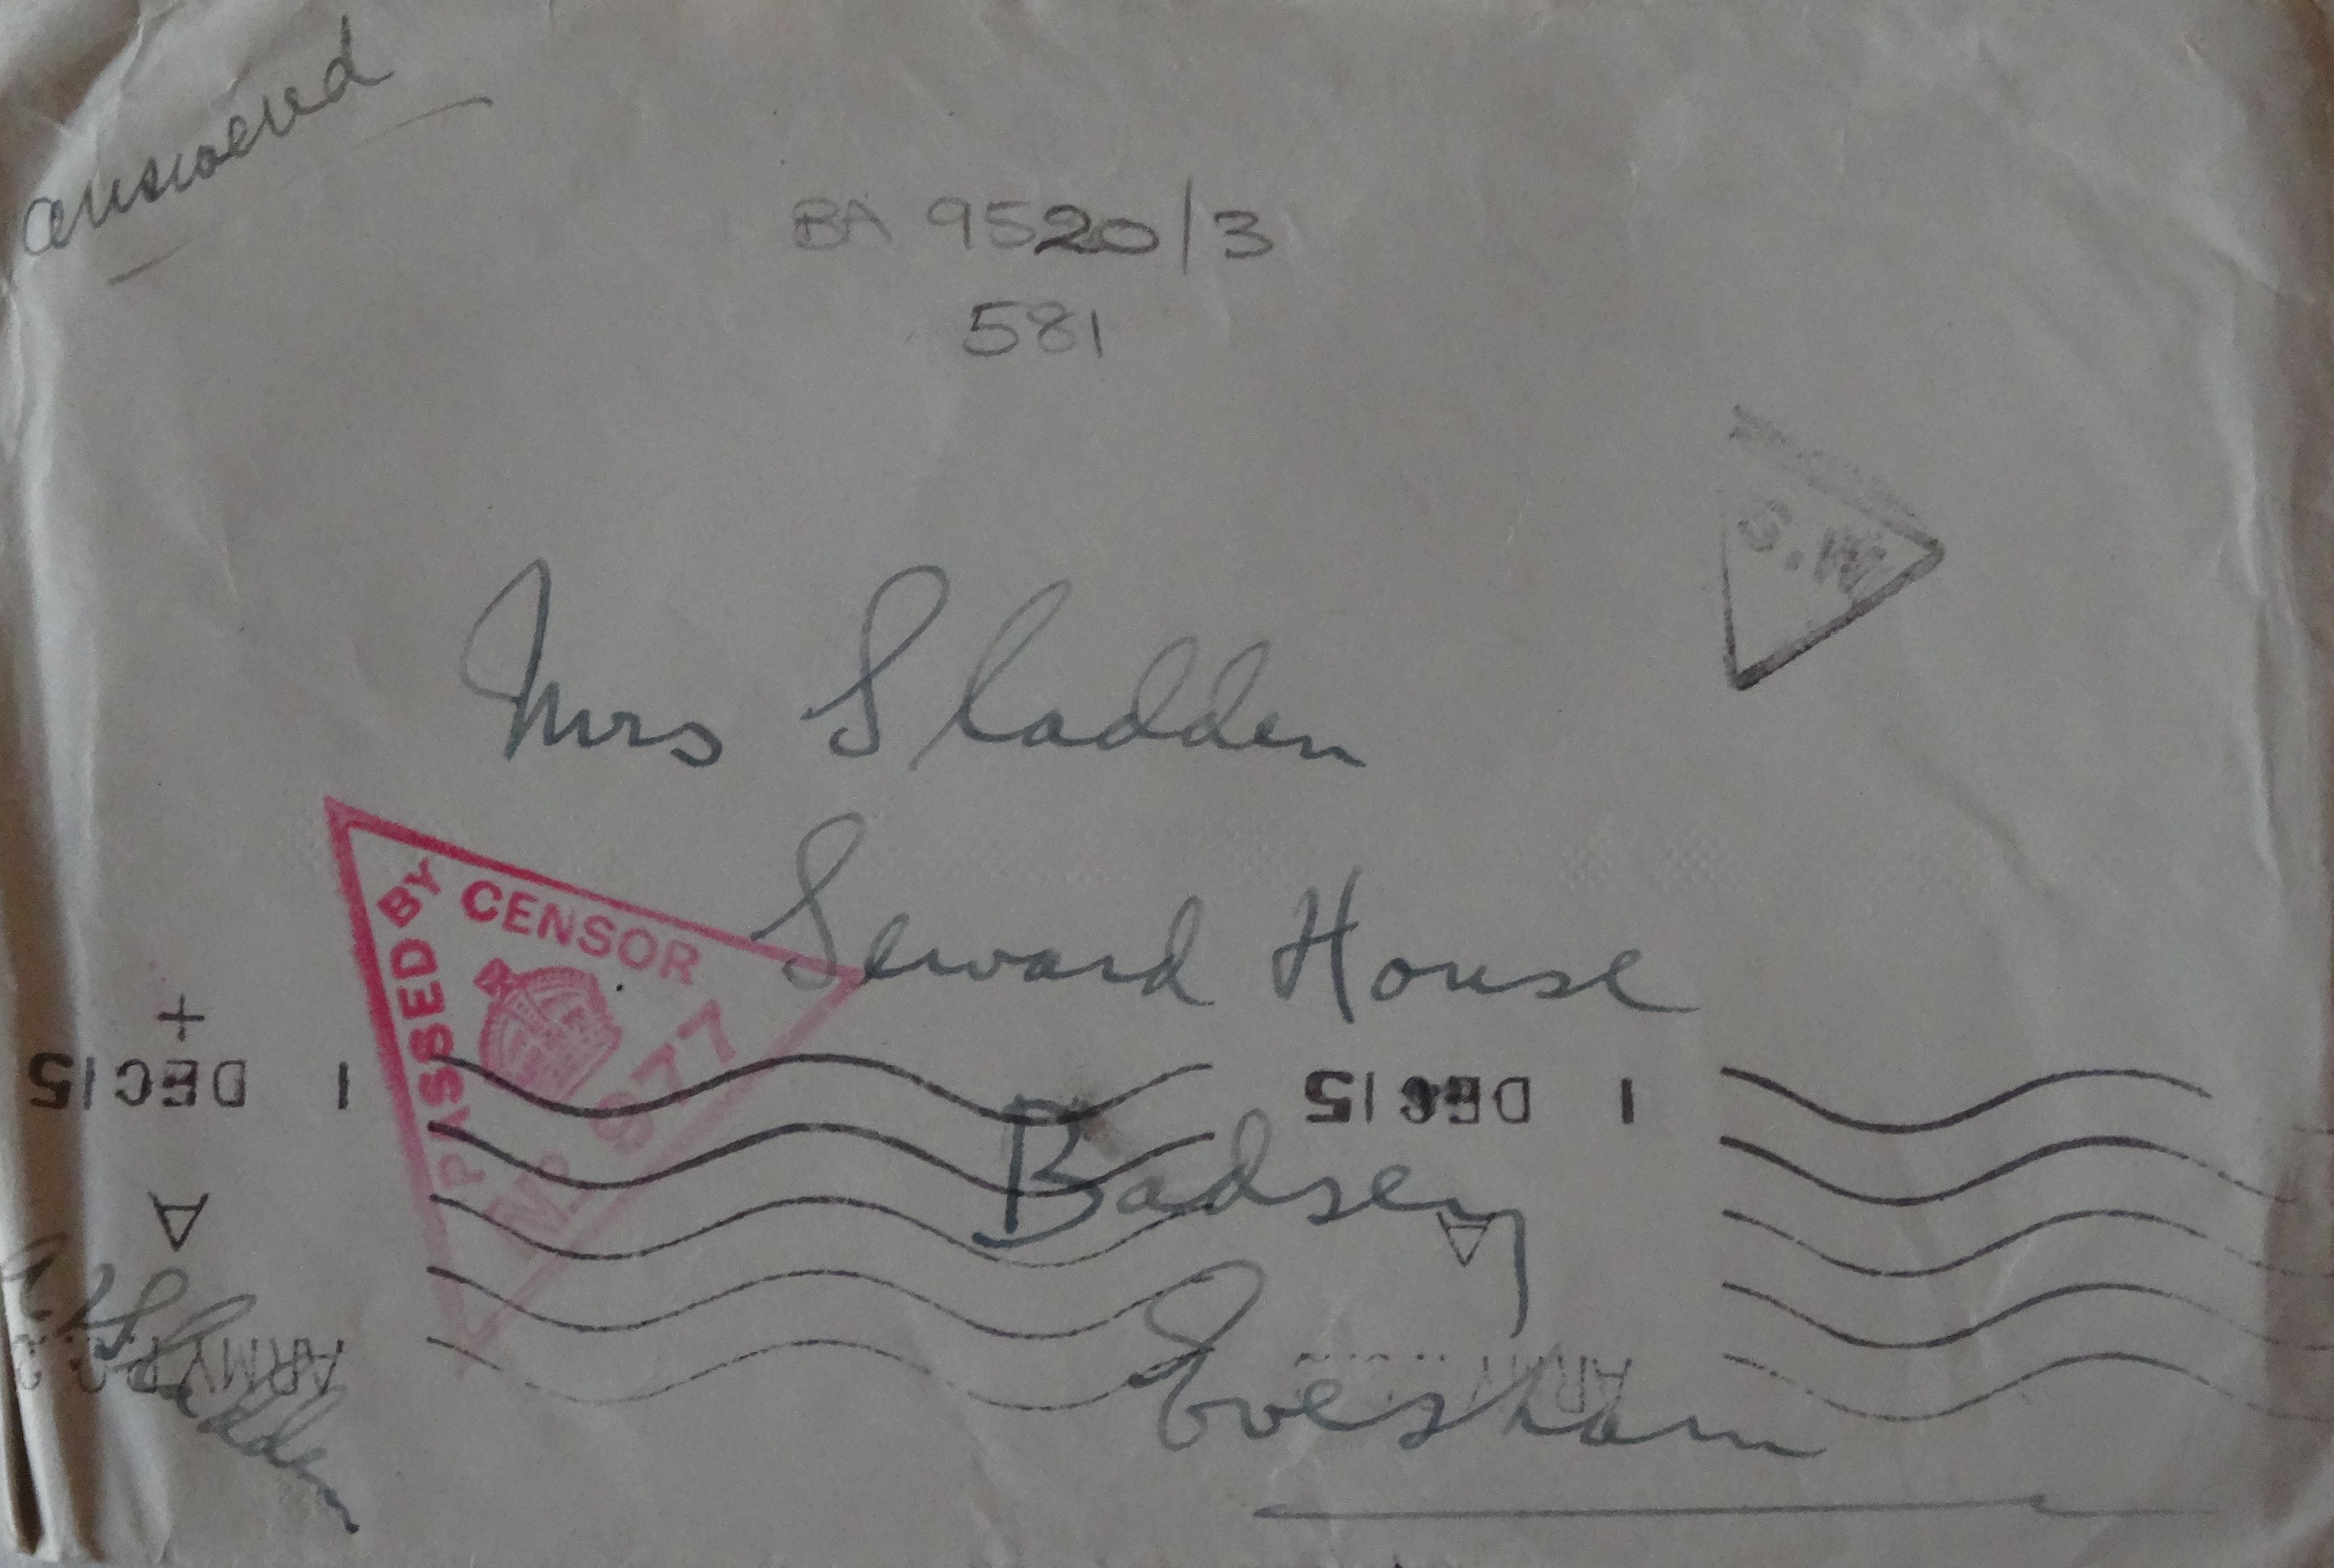 answered
BA 9520/3
581
S.W.
Mrs Sladden
Seward House
Badsey
Evesham
PASSED BY CENSOR
No 977
+
1 DEC 15
A
ARMY P.O. 2
1 DEC 15
A
ARMY
Sladden